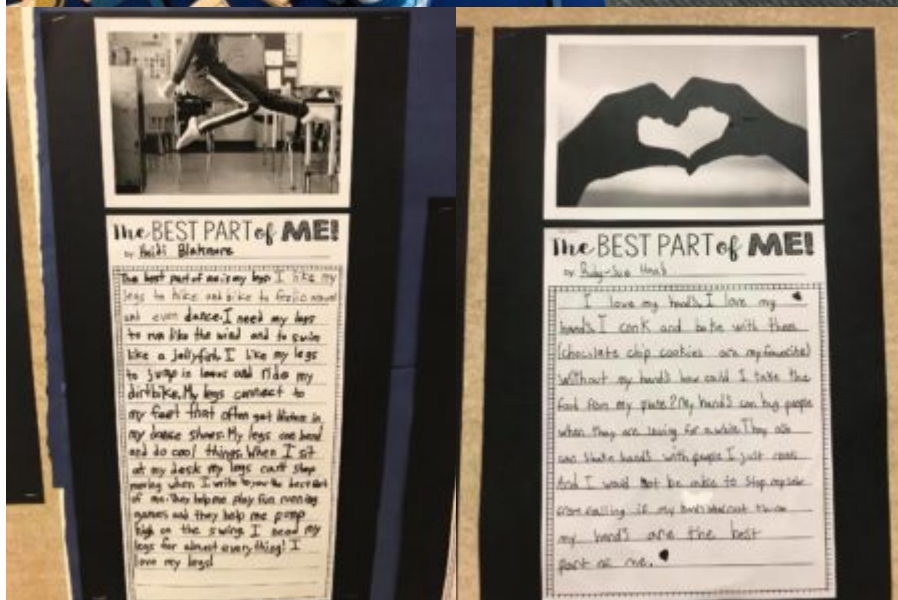 The BEST PART of ME!
by Heidi Blakmore
The best part of me is my legs. I like my
legs to hike and bike to frolic around
and even dance. I need my legs
to run like the wind and to swim
like a jellyfish. I like my legs
to jump in leaves and ride my
dirtbike. My legs connect to
my feet that often get blisters in
my dance shoes. My legs can bend
and do cool things. When I sit
at my desk my legs can't stop
moving when I write to you the best part
of me. They help me play fun running
games and they help me pump
high on the swing. I need my
legs for almost everything! I
love my legs!
The BEST PART of ME!
by Ruby-Sue
I love my hands. I love my
hands. I cook and bake with them
(chocolate chip cookies are my favorite)
Without my hands how could I take the
food from my plate? My hands can hug people
when they are leaving for a while. They also
can shake hands with people I just
And I would not be able to stop myself
from falling if my hands were not there
my hands are the best
part of me.